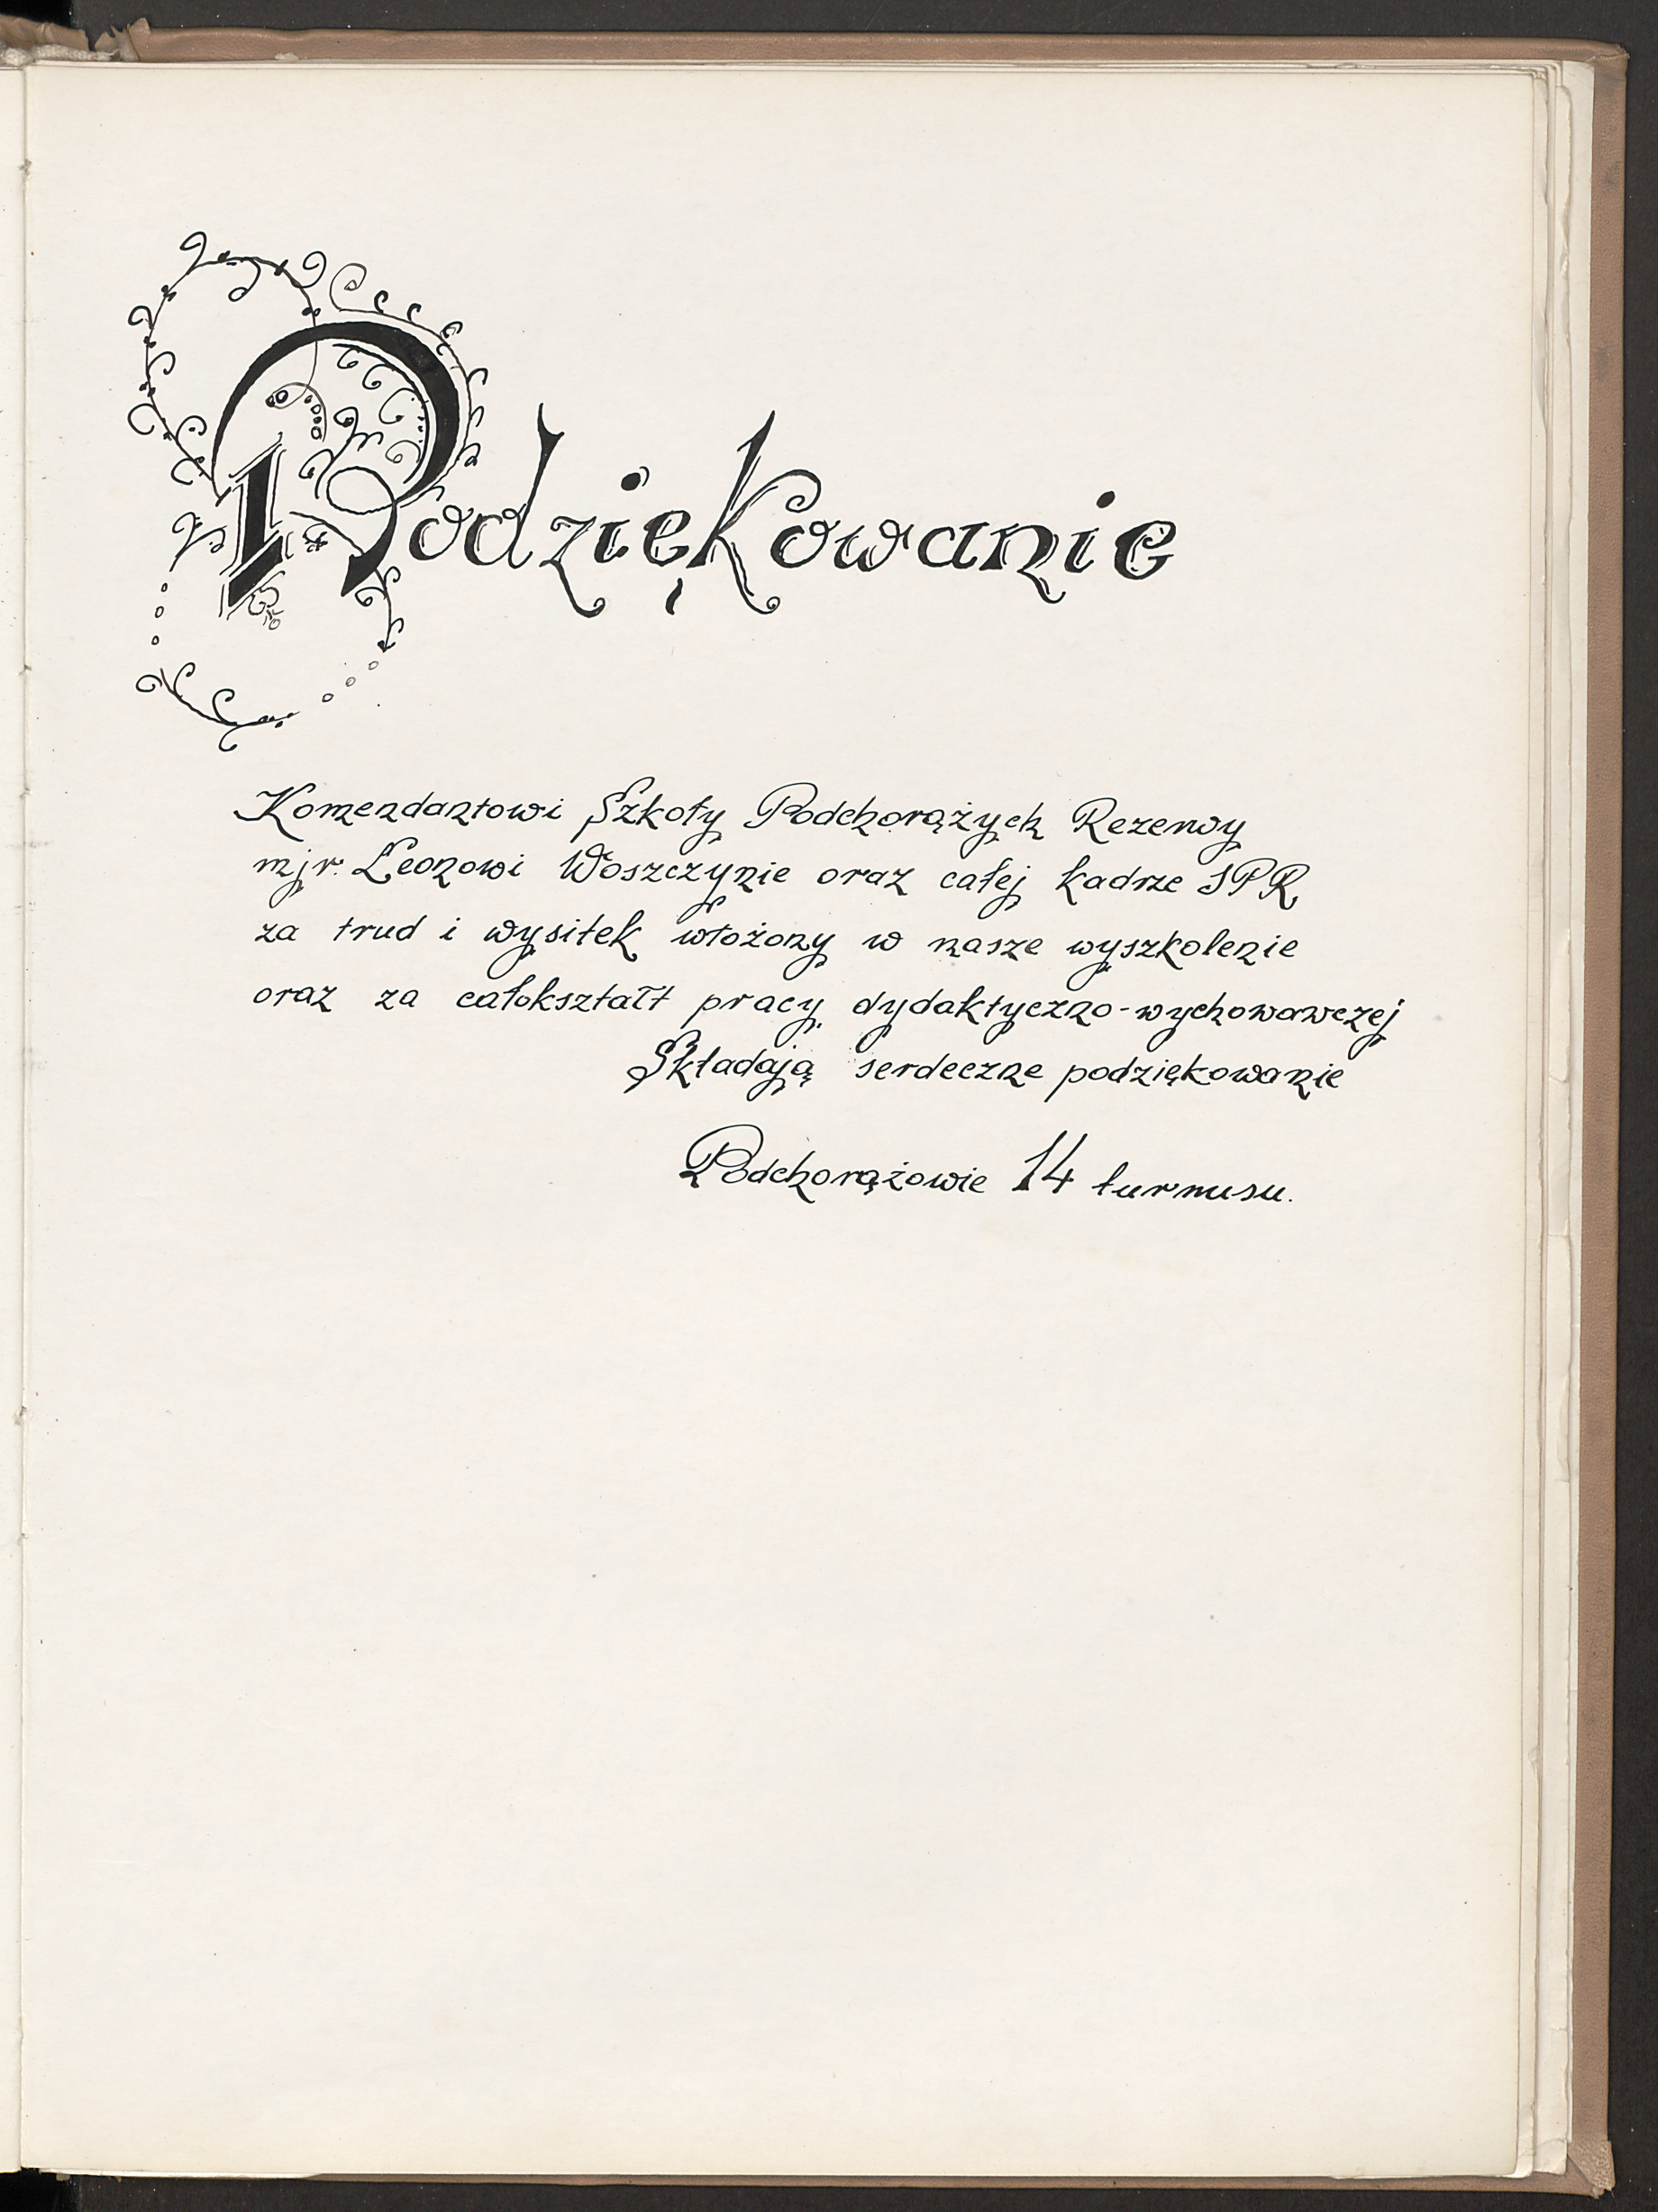 Podziękowanie
Komendantowi Szkoły Podchorążych Rezerwy
mjr. Leonowi Woszczynie oraz całej kadrze SPR
za trud i wysiłek włożony w nasze wyszkolenie
oraz za całokształt pracy dydaktyczno-wychowawczej
Składają serdeczne podziękowanie
Podchorążowie 14 turnusu.